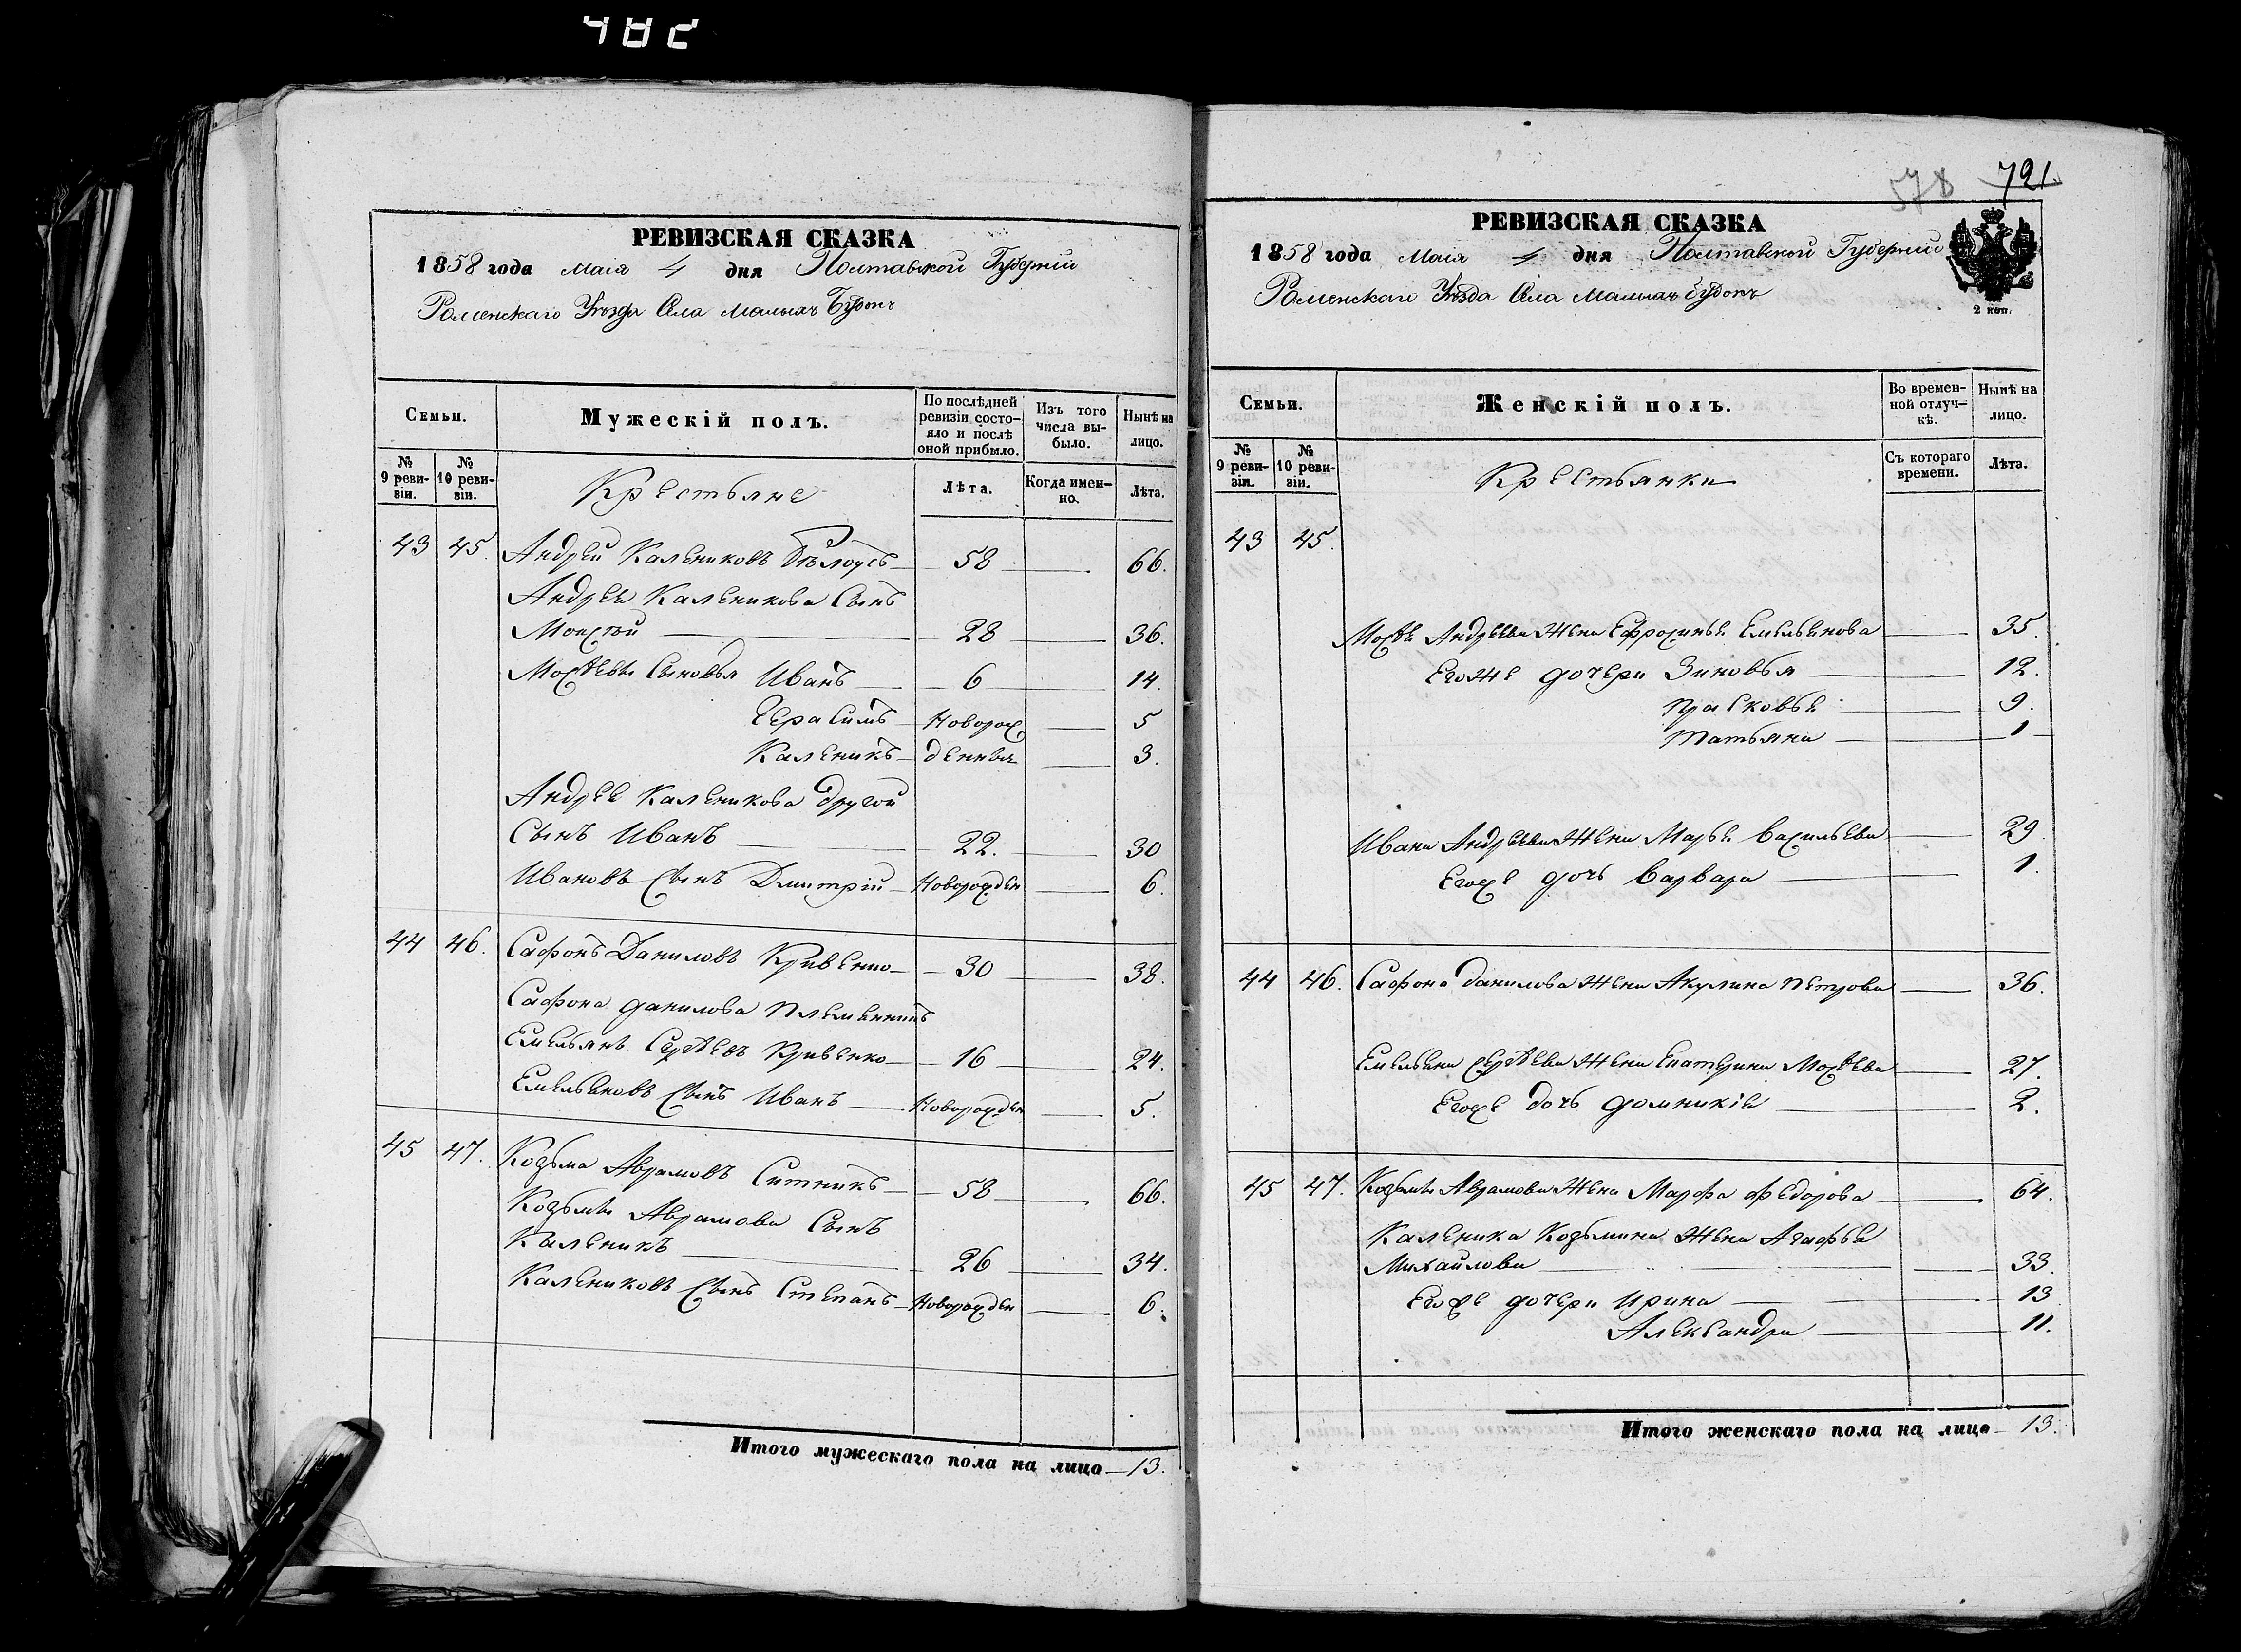 482
РЕВИЗСКАЯ СКАЗКА
1858 года маія 4 дня Полтавской Губерніи
Роменскаго Уѣзда Села малыхъ Будокъ
Семьи.
Мужескій полъ.
По послѣдней ревизіи состояло и послѣ оной прибыло.
Изъ того числа выбыло.
Нынѣ на лицо.
№ 9 ревизіи.
№ 10 ревизіи.
Крестьяне
Лѣта.
Когда именно.
Лѣта.
43 45. Андрей Калениковъ Бѣлоусъ 58 66.
Андрея Каленикова Сынъ
Моисѣй 28 36.
Мосѣевы Сыновья Иванъ 6 14.
Герасимъ Новорож 5
Каленикъ денныя 3.
Андрея Каленикова другой
Сынъ Иванъ 22. 30
Ивановъ Сынъ Дмитрій Новорожден 6.
44 46. Сафонъ Даниловъ Кривенко 30 38.
Сафона данилова племянникъ
Емельянъ Сергѣевъ Кривенко 16 24.
Емельяновъ Сынъ Иванъ Новорожден 5.
45 47. Козьма Аврамовъ Ситникъ 58 66.
Козьмы Аврамова Сынъ
Каленикъ 26 34.
Калениковъ Сынъ Степанъ Новорожден 6.
Итого мужескаго пола на лицо 13.
578 721.
РЕВИЗСКАЯ СКАЗКА
1858 года маія 4 дня Полтавской Губерніи
Роменскаго Уѣзда Села Малыхъ Будокъ
2 коп.
Семьи.
Женскій полъ.
Во временной отлучкѣ.
Нынѣ на лицо.
№ 9 ревизіи.
№ 10 ревизіи.
Крестьянки
Съ котораго времени.
Лѣта.
43 45.
Мосѣя Андреева Жена Ефросинья Емельянова 35.
Егоже дочери Зиновья 12.
Прасковья 9.
Татьяна 1
Ивана Андреева Жена Марья Васильева 29
Егоже дочь Варвара 1.
44 46. Сафона данилова Жена Акулина Петрова 36.
Емельяна Сергѣева Жена Екатерина Мосѣева 27.
Егоже дочь домникія 2.
45 47. Козьмы Аврамова Жена Марфа Федорова 64.
Каленика Козьмина Жена Агафья
Михайлова 33.
Егоже дочери Ирина 13
Александра 11.
Итого женскаго пола на лицо 13.